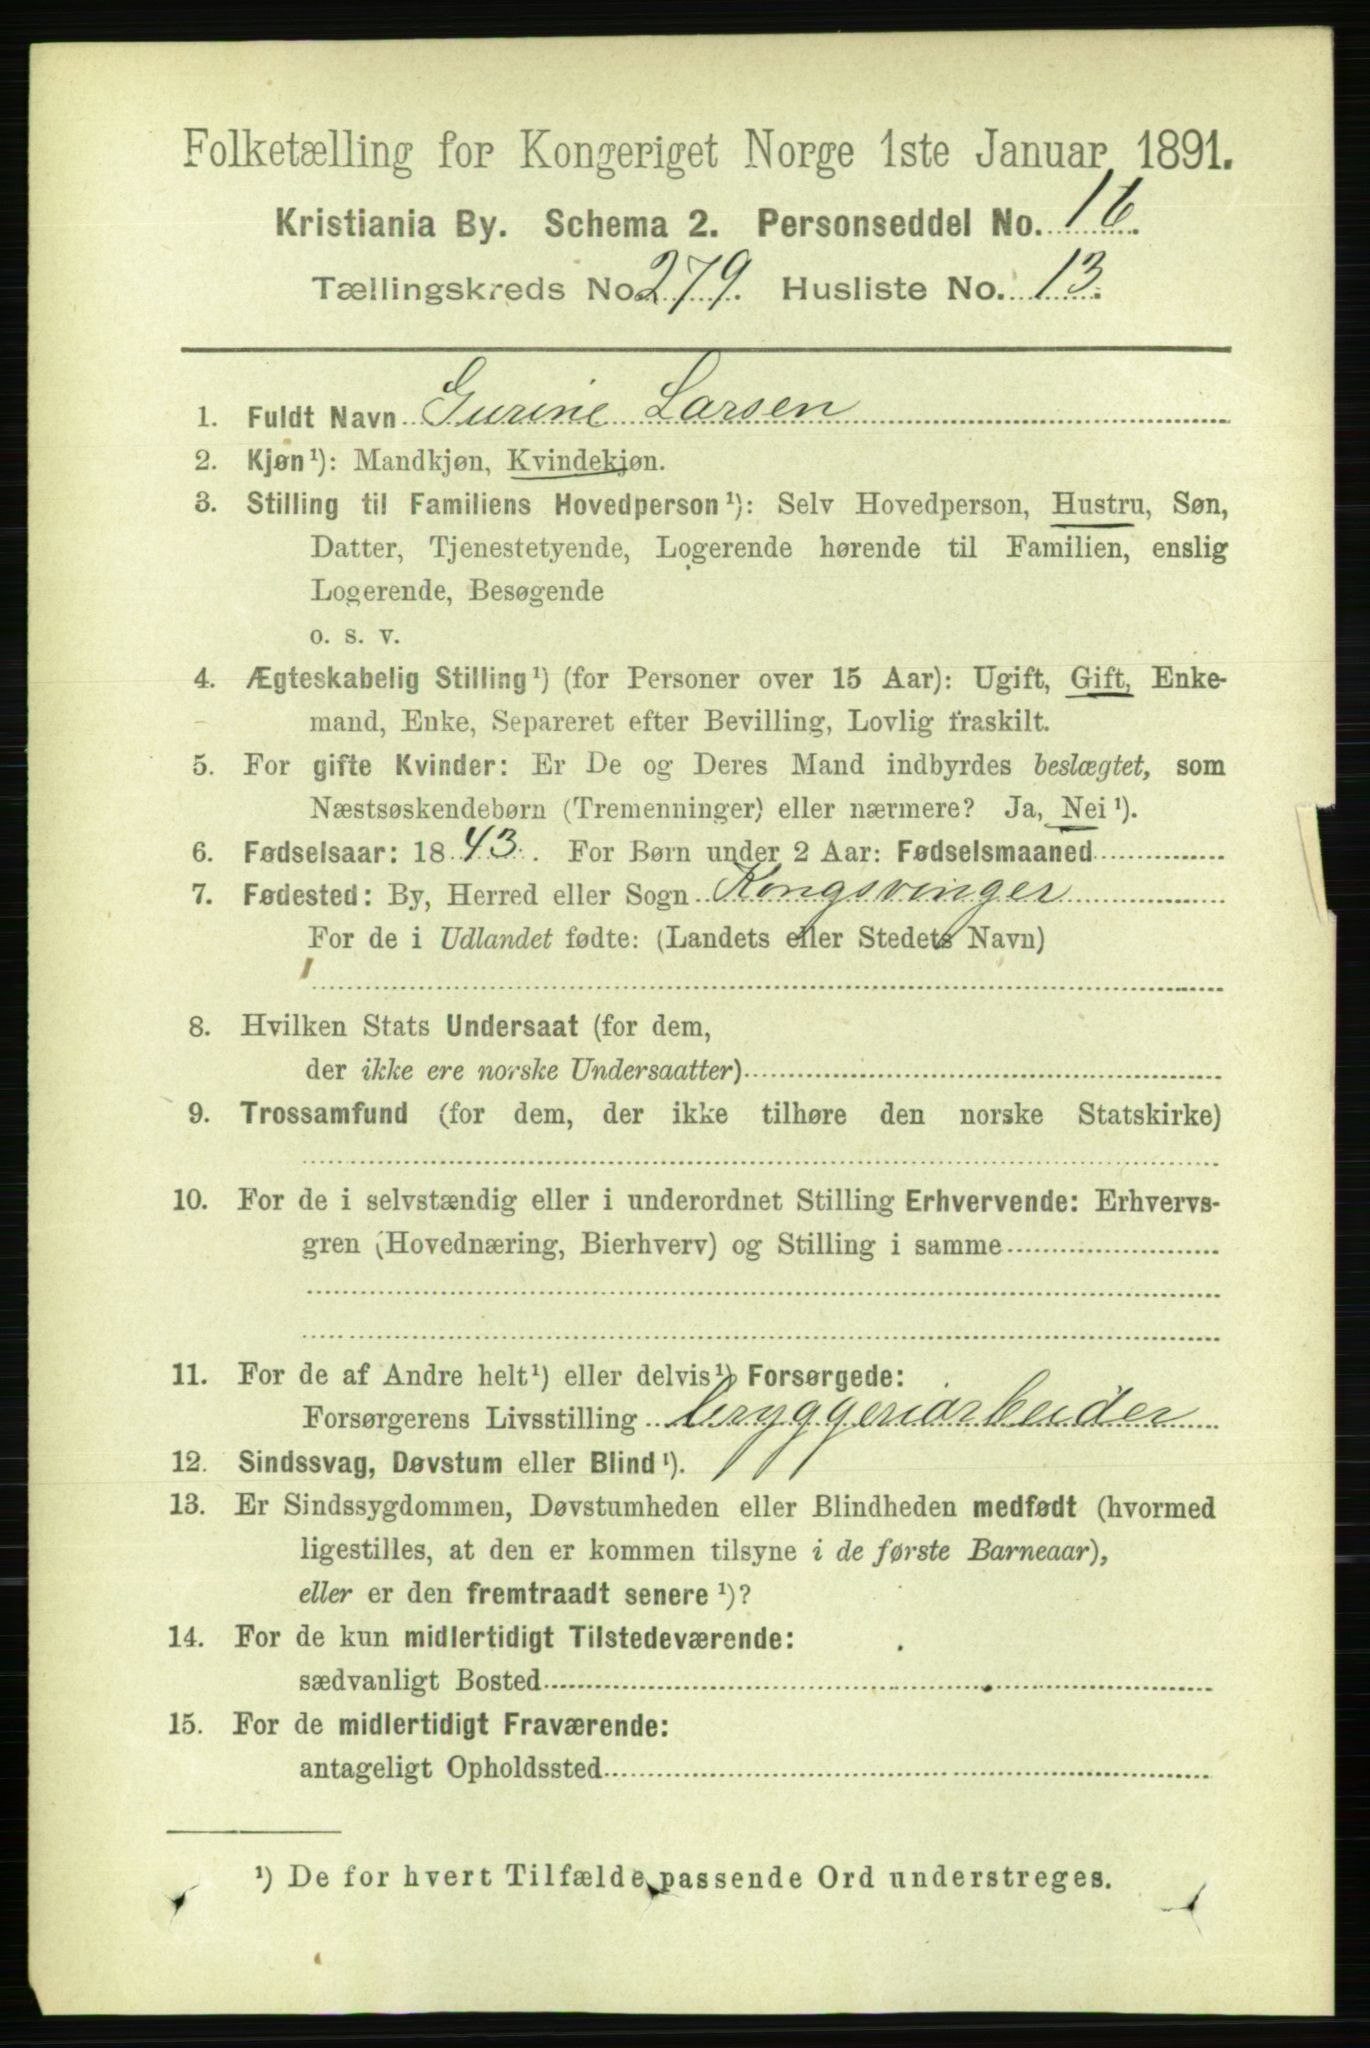 Folketælling for Kongeriget Norge 1ste Januar 1891.
Kristiania By. Schema 2. Personseddel No. 16.
Tællingskreds No. 279. Husliste No. 13.
1. Fuldt Navn Gurine Larsen
2. Kjøn¹): Mandkjøn, Kvindekjøn.
3. Stilling til Familiens Hovedperson¹): Selv Hovedperson, Hustru, Søn,
Datter, Tjenestetyende, Logerende hørende til Familien, enslig
Logerende, Besøgende
o. s. v.
4. Ægteskabelig Stilling¹) (for Personer over 15 Aar): Ugift, Gift, Enke-
mand, Enke, Separeret efter Bevilling, Lovlig fraskilt.
5. For gifte Kvinder: Er De og Deres Mand indbyrdes beslægtet, som
Næstsøskendebørn (Tremenninger) eller nærmere? Ja, Nei¹).
6. Fødselsaar: 1843. For Børn under 2 Aar: Fødselsmaaned
7. Fødested: By, Herred eller Sogn Kongsvinger
For de i Udlandet fødte: (Landets eller Stedets Navn)
8. Hvilken Stats Undersaat (for dem,
der ikke ere norske Undersaatter)
9. Trossamfund (for dem, der ikke tilhøre den norske Statskirke)
10. For de i selvstændig eller i underordnet Stilling Erhvervende: Erhvervs-
gren (Hovednæring, Bierhverv) og Stilling i samme
11. For de af Andre helt¹) eller delvis¹) Forsørgede:
Forsørgerens Livsstilling bryggeriarbeider
12. Sindssvag, Døvstum eller Blind¹).
13. Er Sindssygdommen, Døvstumheden eller Blindheden medfødt (hvormed
ligestilles, at den er kommen tilsyne i de første Barneaar),
eller er den fremtraadt senere¹)?
14. For de kun midlertidigt Tilstedeværende:
sædvanligt Bosted
15. For de midlertidigt Fraværende:
antageligt Opholdssted
¹) De for hvert Tilfælde passende Ord understreges.